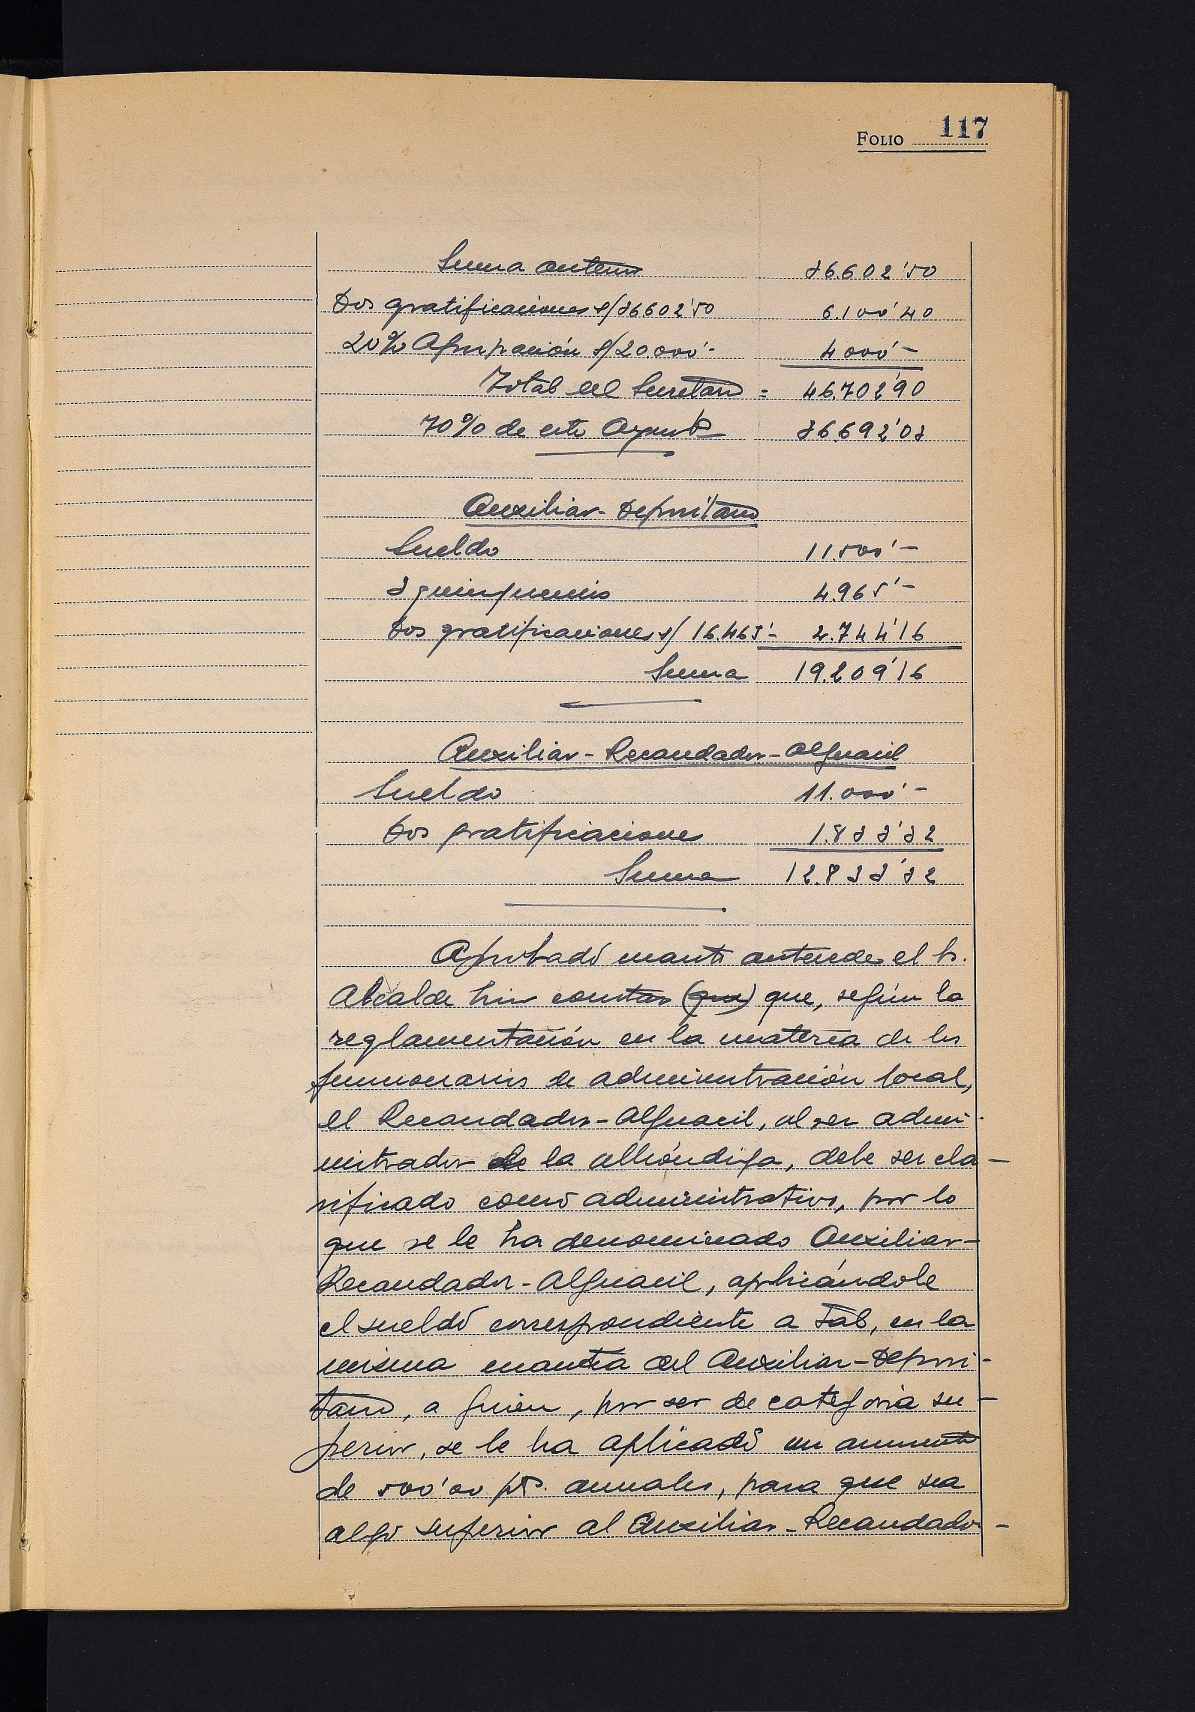 FOLIO 117
Suma anterior 36.602'50
Dos gratificaciones s/36602'50 6.100'40
20% Agrupación s/20.000'- 4000'-
Total del Secretario = 46.702'90
70% de este Ayunt.º 36.692'03
Auxiliar-Depositario
Sueldo 11.500'-
3 quinquenios 4.965'-
Dos gratificaciones s/ 16.465'- 2.744'16
Suma 19.209'16
Auxiliar-Recaudador-Alguacil
Sueldo 11.000'-
Dos gratificaciones 1.833'32
Suma 12.833'32
Aprobado cuanto antecede, el Sr.
Alcalde hizo constar (que) que, según la
reglamentación en la materia de los
funcionarios de administración local,
el Recaudador-Alguacil, al ser admi-
nistrador de la alhóndiga, debe ser cla-
sificado como administrativo, por lo
que se le ha denominado Auxiliar-
Recaudador-Alguacil, aplicándole
el sueldo correspondiente a tal, en la
misma cuantía del Auxiliar-Deposi-
tario, a quien, por ser de categoria su-
perior, se le ha aplicado un aumento
de 500'00 pts. anuales, para que sea
algo superior al Auxiliar-Recaudador-